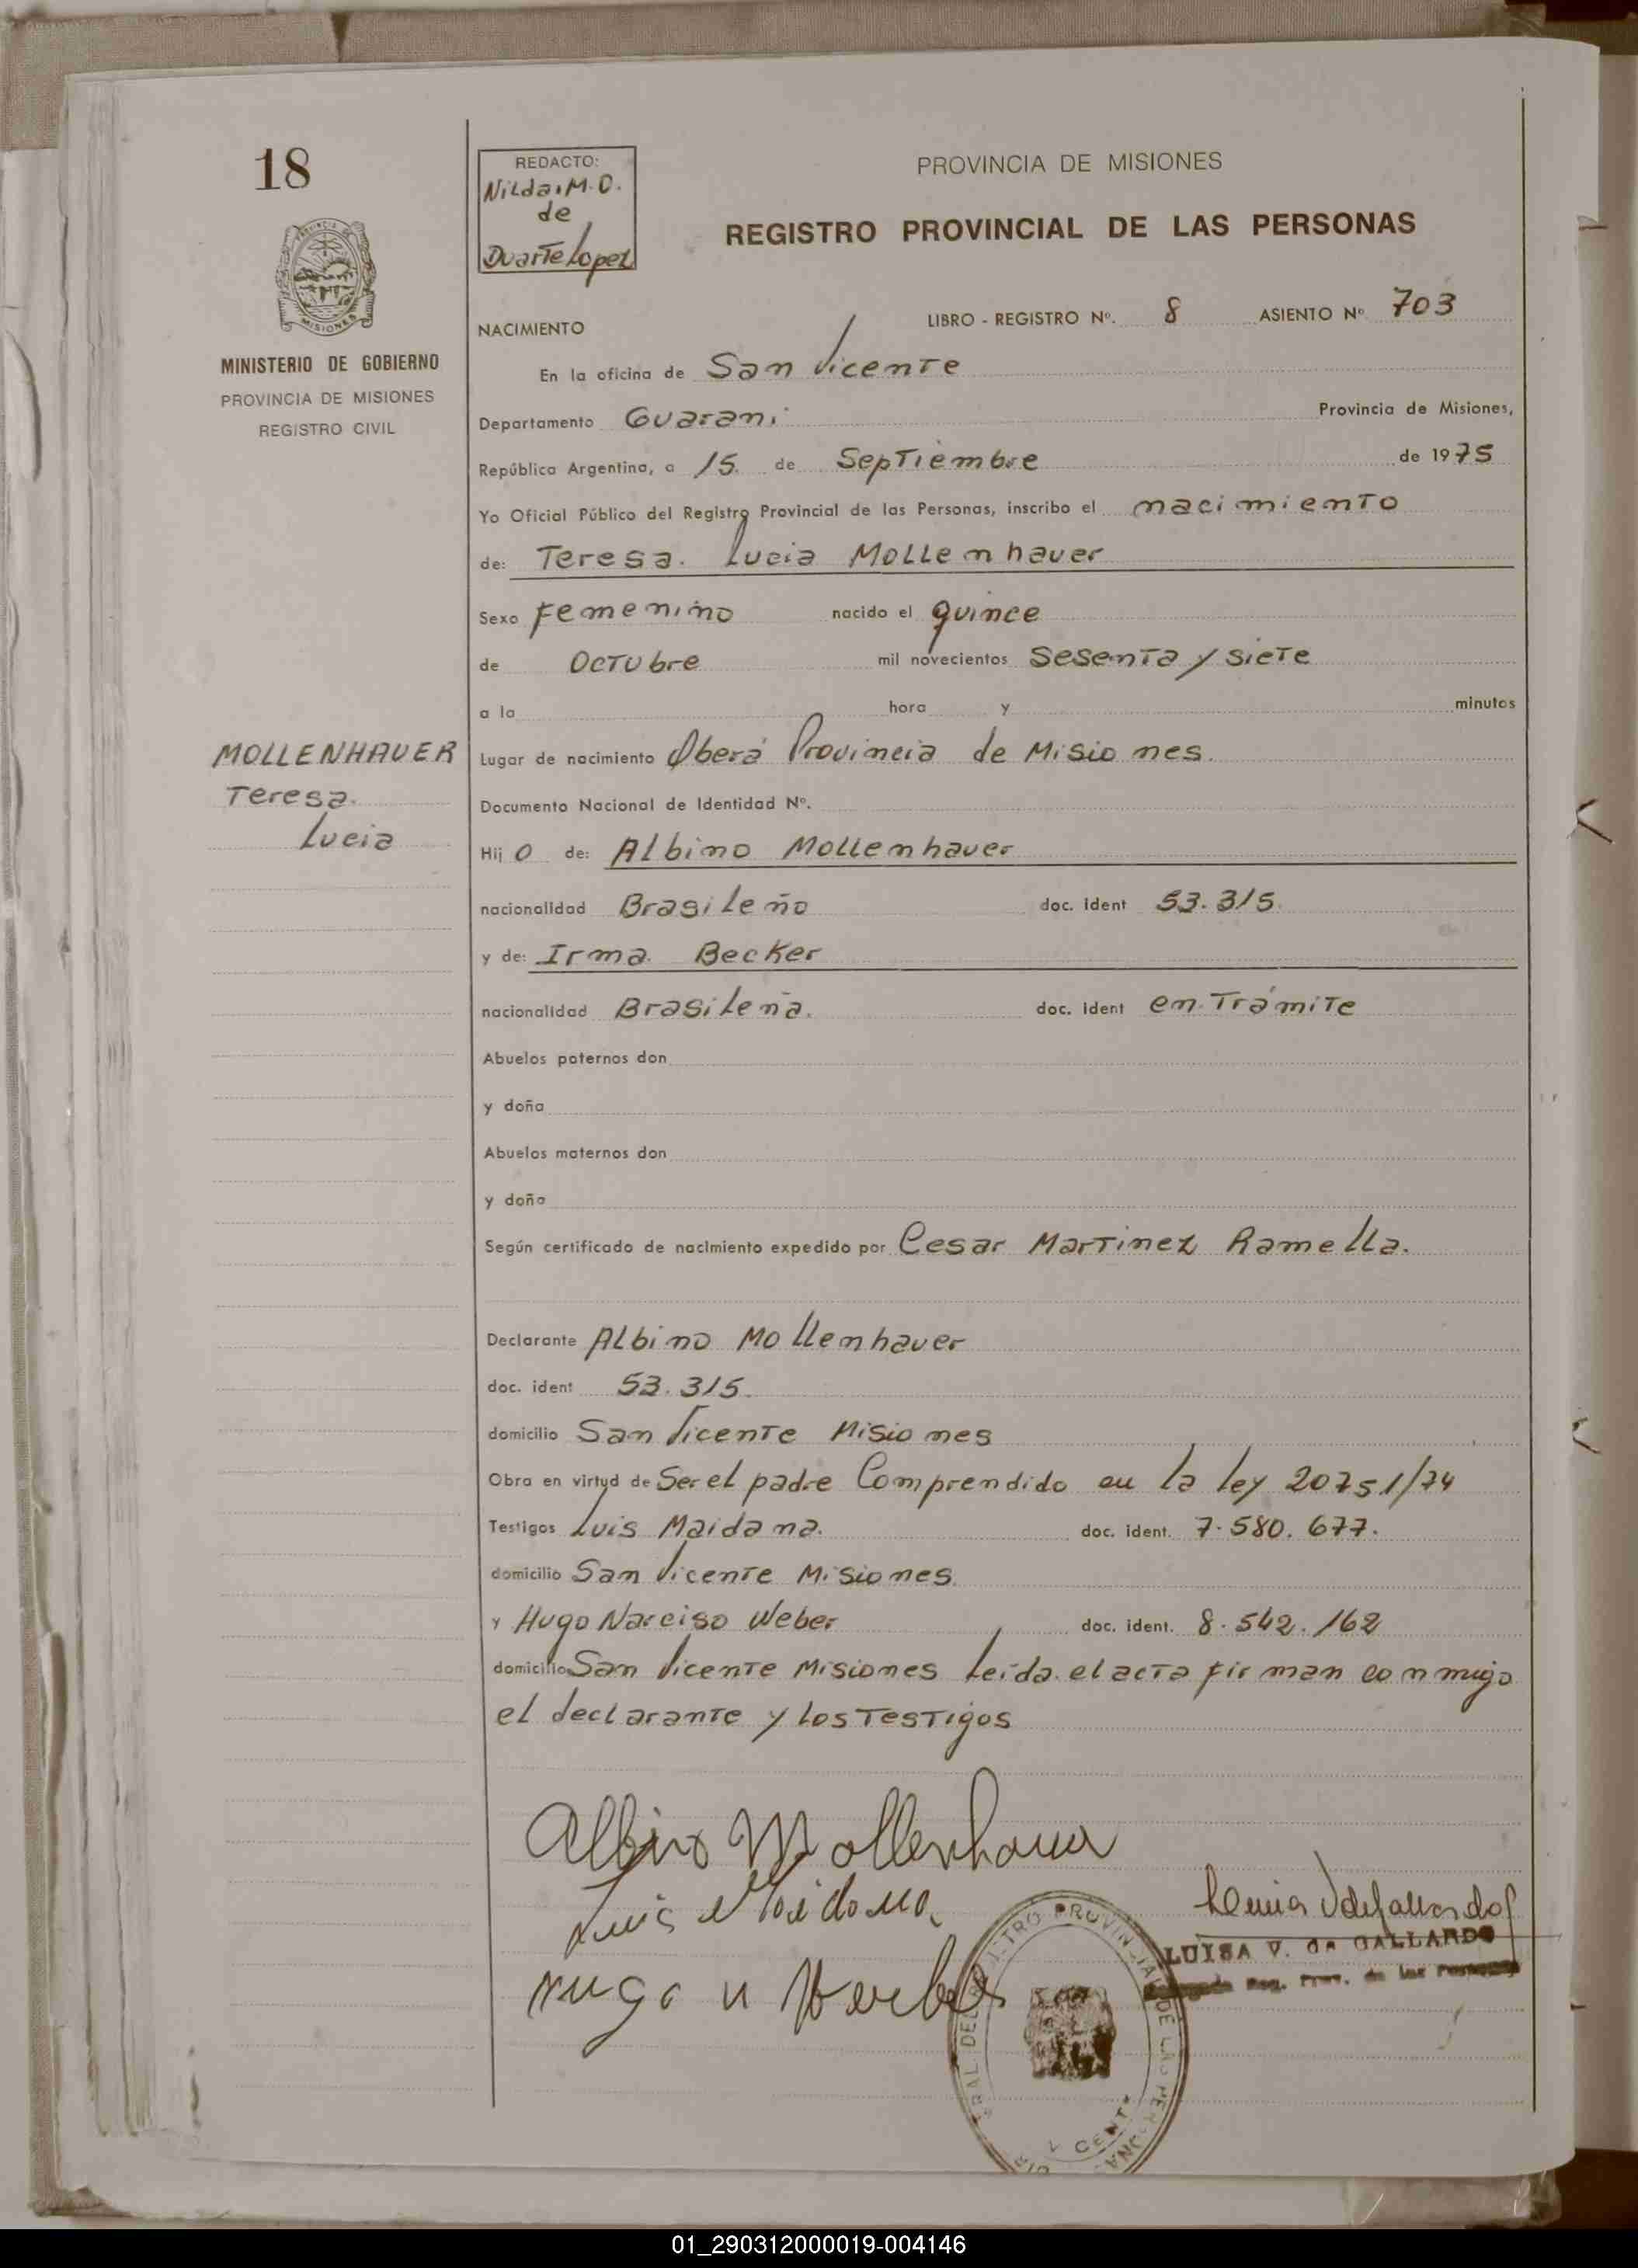 18
REDACTO:
Nilda M.O.
de
Duarte Lopez
PROVINCIA DE MISIONES
REGISTRO PROVINCIAL DE LAS PERSONAS
MISIONES
MINISTERIO DE GOBIERNO
PROVINCIA DE MISIONES
REGISTRO CIVIL
NACIMIENTO
LIBRO - REGISTRO Nº. 8 ASIENTO Nº 703
En la oficina de San Vicente
Departamento Guarani Provincia de Misiones,
República Argentina, a 15 de Septiembre de 1975
Yo Oficial Público del Registro Provincial de las Personas, inscribo el nacimiento
de: Teresa Lucia Mollenhauer
Sexo Femenino nacido el quince
de Octubre mil novecientos Sesenta y siete
a la hora y minutos
Lugar de nacimiento Oberá Provincia de Misiones.
MOLLENHAUER
Teresa
Lucia
Documento Nacional de Identidad Nº.
Hijo de: Albino Mollenhauer
nacionalidad Brasileño doc. ident 53.315
y de: Irma Becker
nacionalidad Brasileña. doc. ident en Trámite
Abuelos paternos don
y doña
Abuelos maternos don
y doña
Según certificado de nacimiento expedido por Cesar Martinez Ramella.
Declarante Albino Mollenhauer
doc. ident 53.315
domicilio San Vicente Misiones
Obra en virtud de Ser el padre Comprendido en la ley 20751/74
Testigos Luis Maidana. doc. ident. 7.580.677.
domicilio San Vicente Misiones
y Hugo Narciso Weber doc. ident. 8.542.162
domicilio San Vicente Misiones leida el acta firman conmigo
el declarante y los Testigos
Albino Mollenhauer
Luis Maidana
Hugo N Weber
LUISA V. de GALLARDO
Reg. Prov. de las Personas
01_290312000019-004146